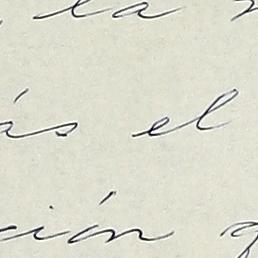 la
ás el
ción